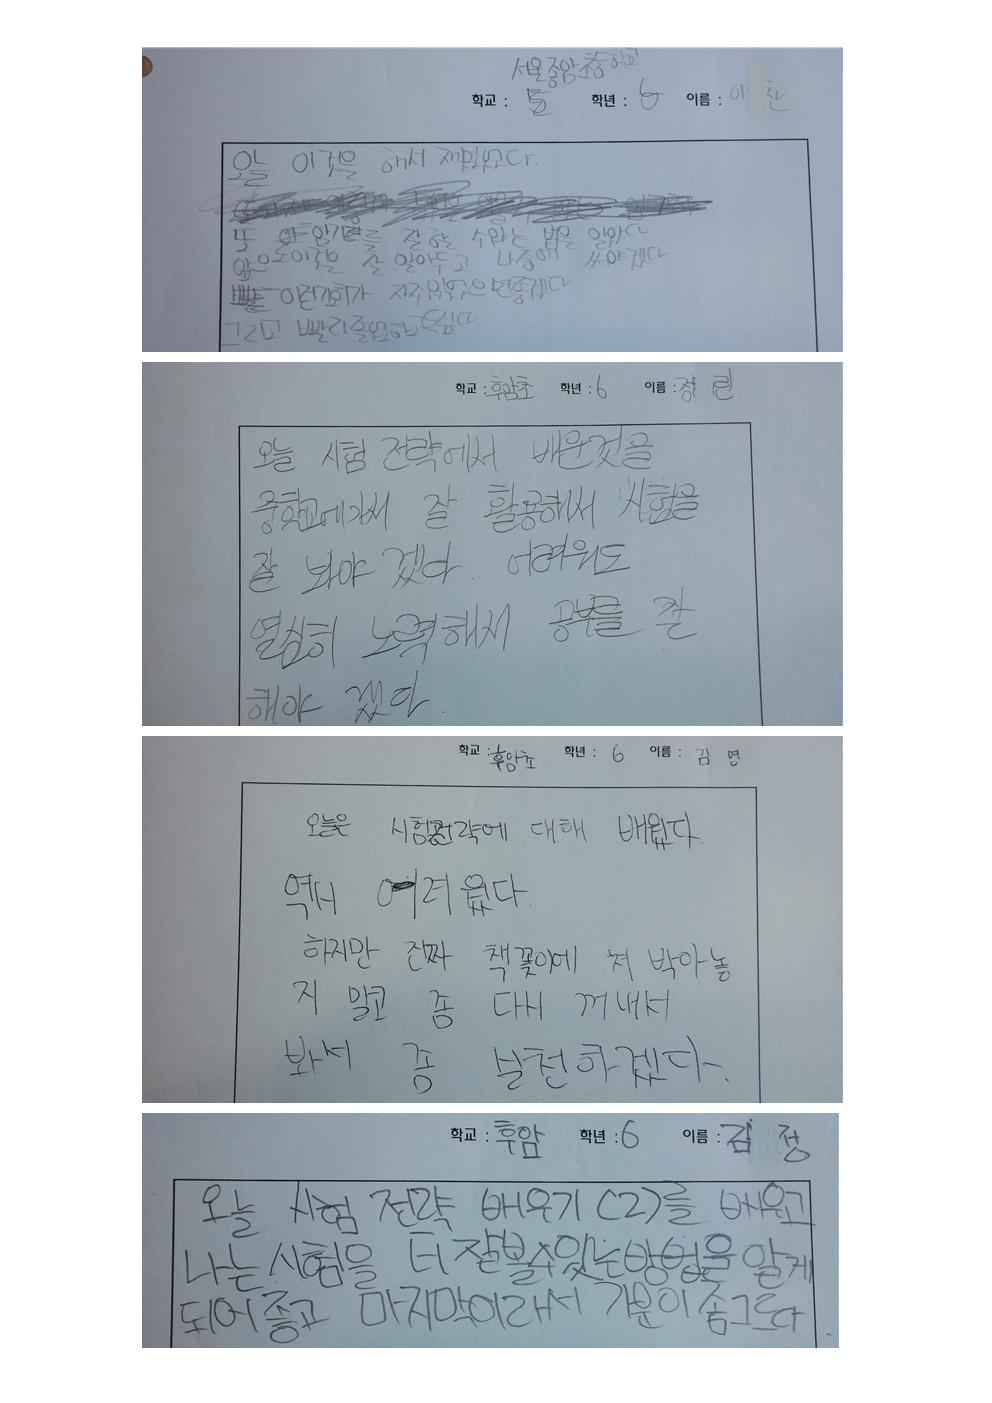 서울중암초등학교
학교 : 학년 : 6 이름 : 이 찬
오늘 이것을 해서 재밌었다.
또 암기력를 잘 할 수있는 법을 알았다
앞으로이것은 잘 알아두고 나중에 써야겠다
이런기회가 자주있었으면좋겠다
그리고 빨리졸업하고싶다
학교 : 후암초 학년 : 6 이름 : 정 린
오늘 시험 전략에서 배운것을
중학교에가서 잘 활용해서 시험을
잘 봐야 겠다. 어려워도
열심히 노력해서 공부를 잘
해야 겠다.
학교 : 후암초 학년 : 6 이름 : 김 연
오늘은 시험전략에 대해 배웠다.
역시 어려웠다.
하지만 진짜 책꽂이에 쳐 박아놓
지 말고 좀 다시 꺼내서
봐서 좀 실천하겠다.
학교 : 후암 학년 : 6 이름 : 김 정
오늘 시험 전략 배우기 (2)를 배우고
나는 시험을 더 잘볼수있는방법을 알게
되어좋고 마지막이래서 기분이 좀그르다.